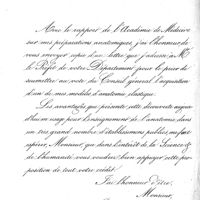 Avec le rapport de l'Académie de Médecine
sur mes préparations anatomiques, j'ai l'honneur de
vous envoyer copie d'un lettre que j'adresse à Mr
le Préfet de votre Département pour le prier de
soumettre au vote du Conseil général l'acquisition
d'un de mes modèles d'anatomie clastique.
Les avantages que présente cette découverte aujourd'
hui en usage pour l'enseignement de l'anatomie, dans
un très grand nombre d'établissements publics, me font
espérer, Monsieur, que dans l'intérêt de la Science &
de l'humanité vous voudrez bien appuyer cette pro-
position de tout votre crédit.
J'ai l'honneur d'être,
Monsieur,